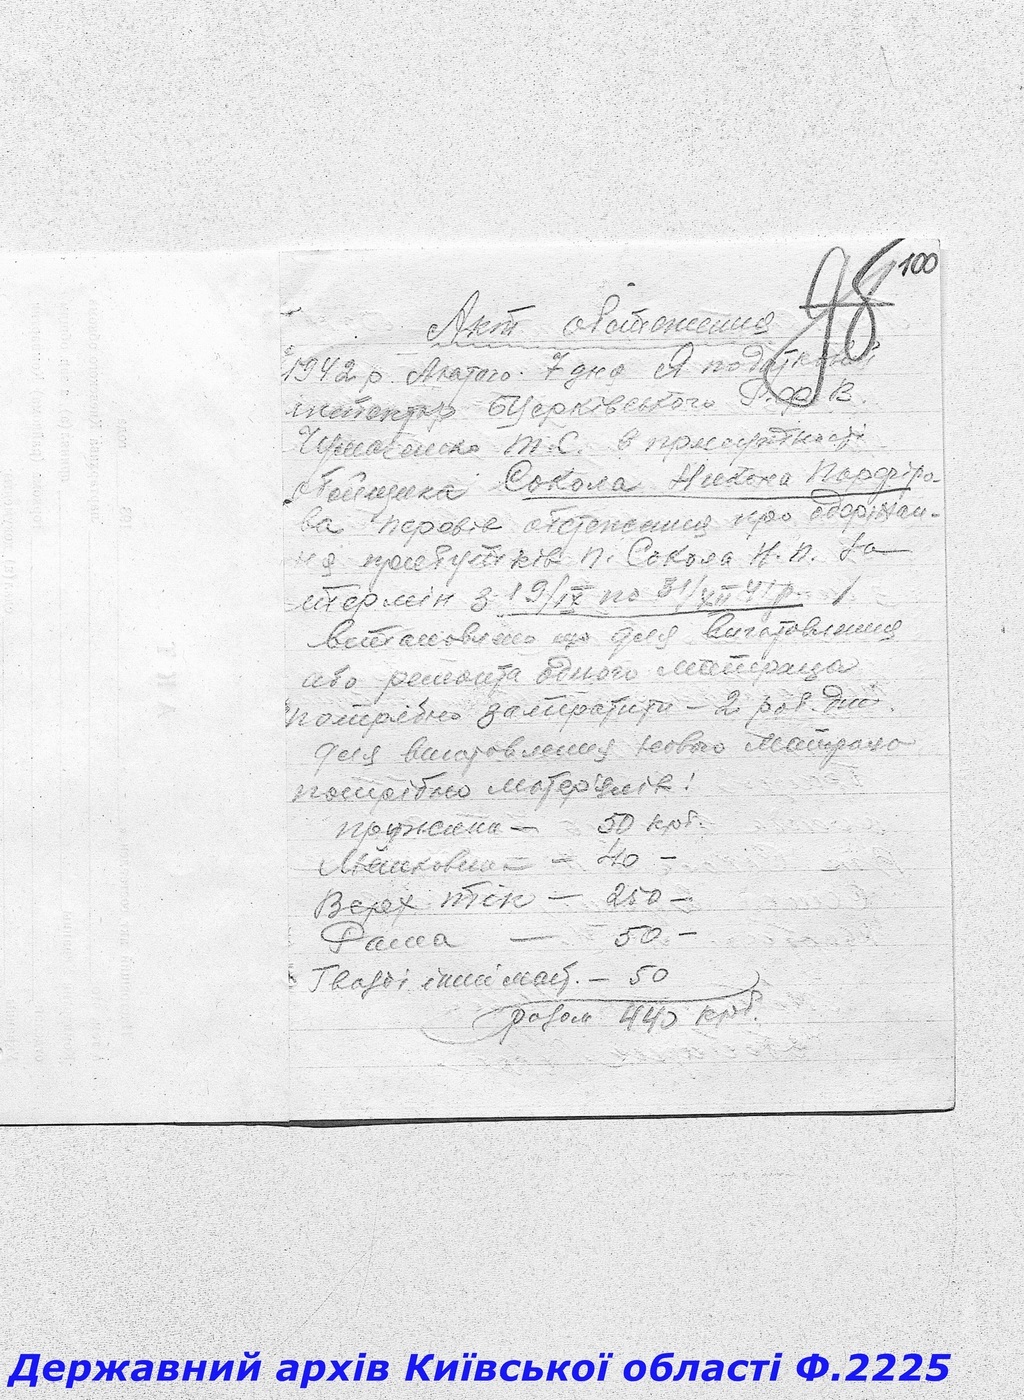 98 100
Акт обстеження
1942 р. Лютого 7 дня Я податковий
інспектор БЦерківського Р.Ф.В.
Т.С. в присутності
обойщика Сокола Никона Порфіро-
ва перевів обстеження про одержан-
ня прибутків п. Сокола Н.П. за
термін з 19/IX по 31/XII 41 р.
встановлено що для виготовлення
або ремонта одного матраца
потрібно затратити – 2 роб. дні.
для виготовлення нового матраца
потрібно матеріялів:
пружина – 50 крб.
Мешковина – 40 –
Верх тік – 250 –
Рама – 50 –
Гвозді інші мат. – 50
разом 440 крб.
Державний архів Київської області Ф.2225